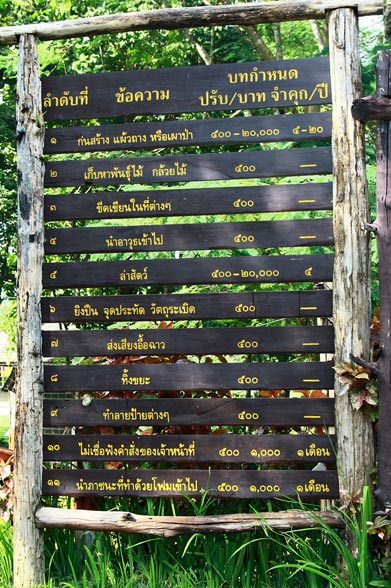 ลำดับที่ ข้อความ บทกำหนด
ปรับ/บาท จำคุก/ปี
๑ ก่นสร้าง แผ้วถาง หรือเผาป่า ๕๐๐-๒๐,๐๐๐ ๔-๒๐
๒ เก็บหาพันธุ์ไม้ กล้วยไม้ ๕๐๐ —
๓ ขีดเขียนในที่ต่างๆ ๕๐๐ —
๔ นำอาวุธเข้าไป ๕๐๐ —
๕ ล่าสัตว์ ๕๐๐-๒๐,๐๐๐ ๕
๖ ยิงปืน จุดประทัด วัตถุระเบิด ๕๐๐ —
๗ ส่งเสียงอื้อฉาว ๕๐๐ —
๘ ทิ้งขยะ ๕๐๐ —
๙ ทำลายป้ายต่างๆ ๕๐๐ —
๑๐ ไม่เชื่อฟังคำสั่งของเจ้าหน้าที่ ๕๐๐ ๑,๐๐๐ ๑เดือน
๑๑ นำภาชนะที่ทำด้วยโฟมเข้าไป ๕๐๐ ๑,๐๐๐ ๑เดือน